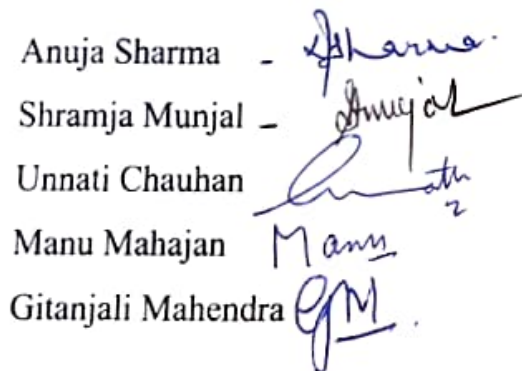 Anuja Sharma - ASharma.
Shramja Munjal - SMunjal
Unnati Chauhan
Manu Mahajan Manu
Gitanjali Mahendra GM.